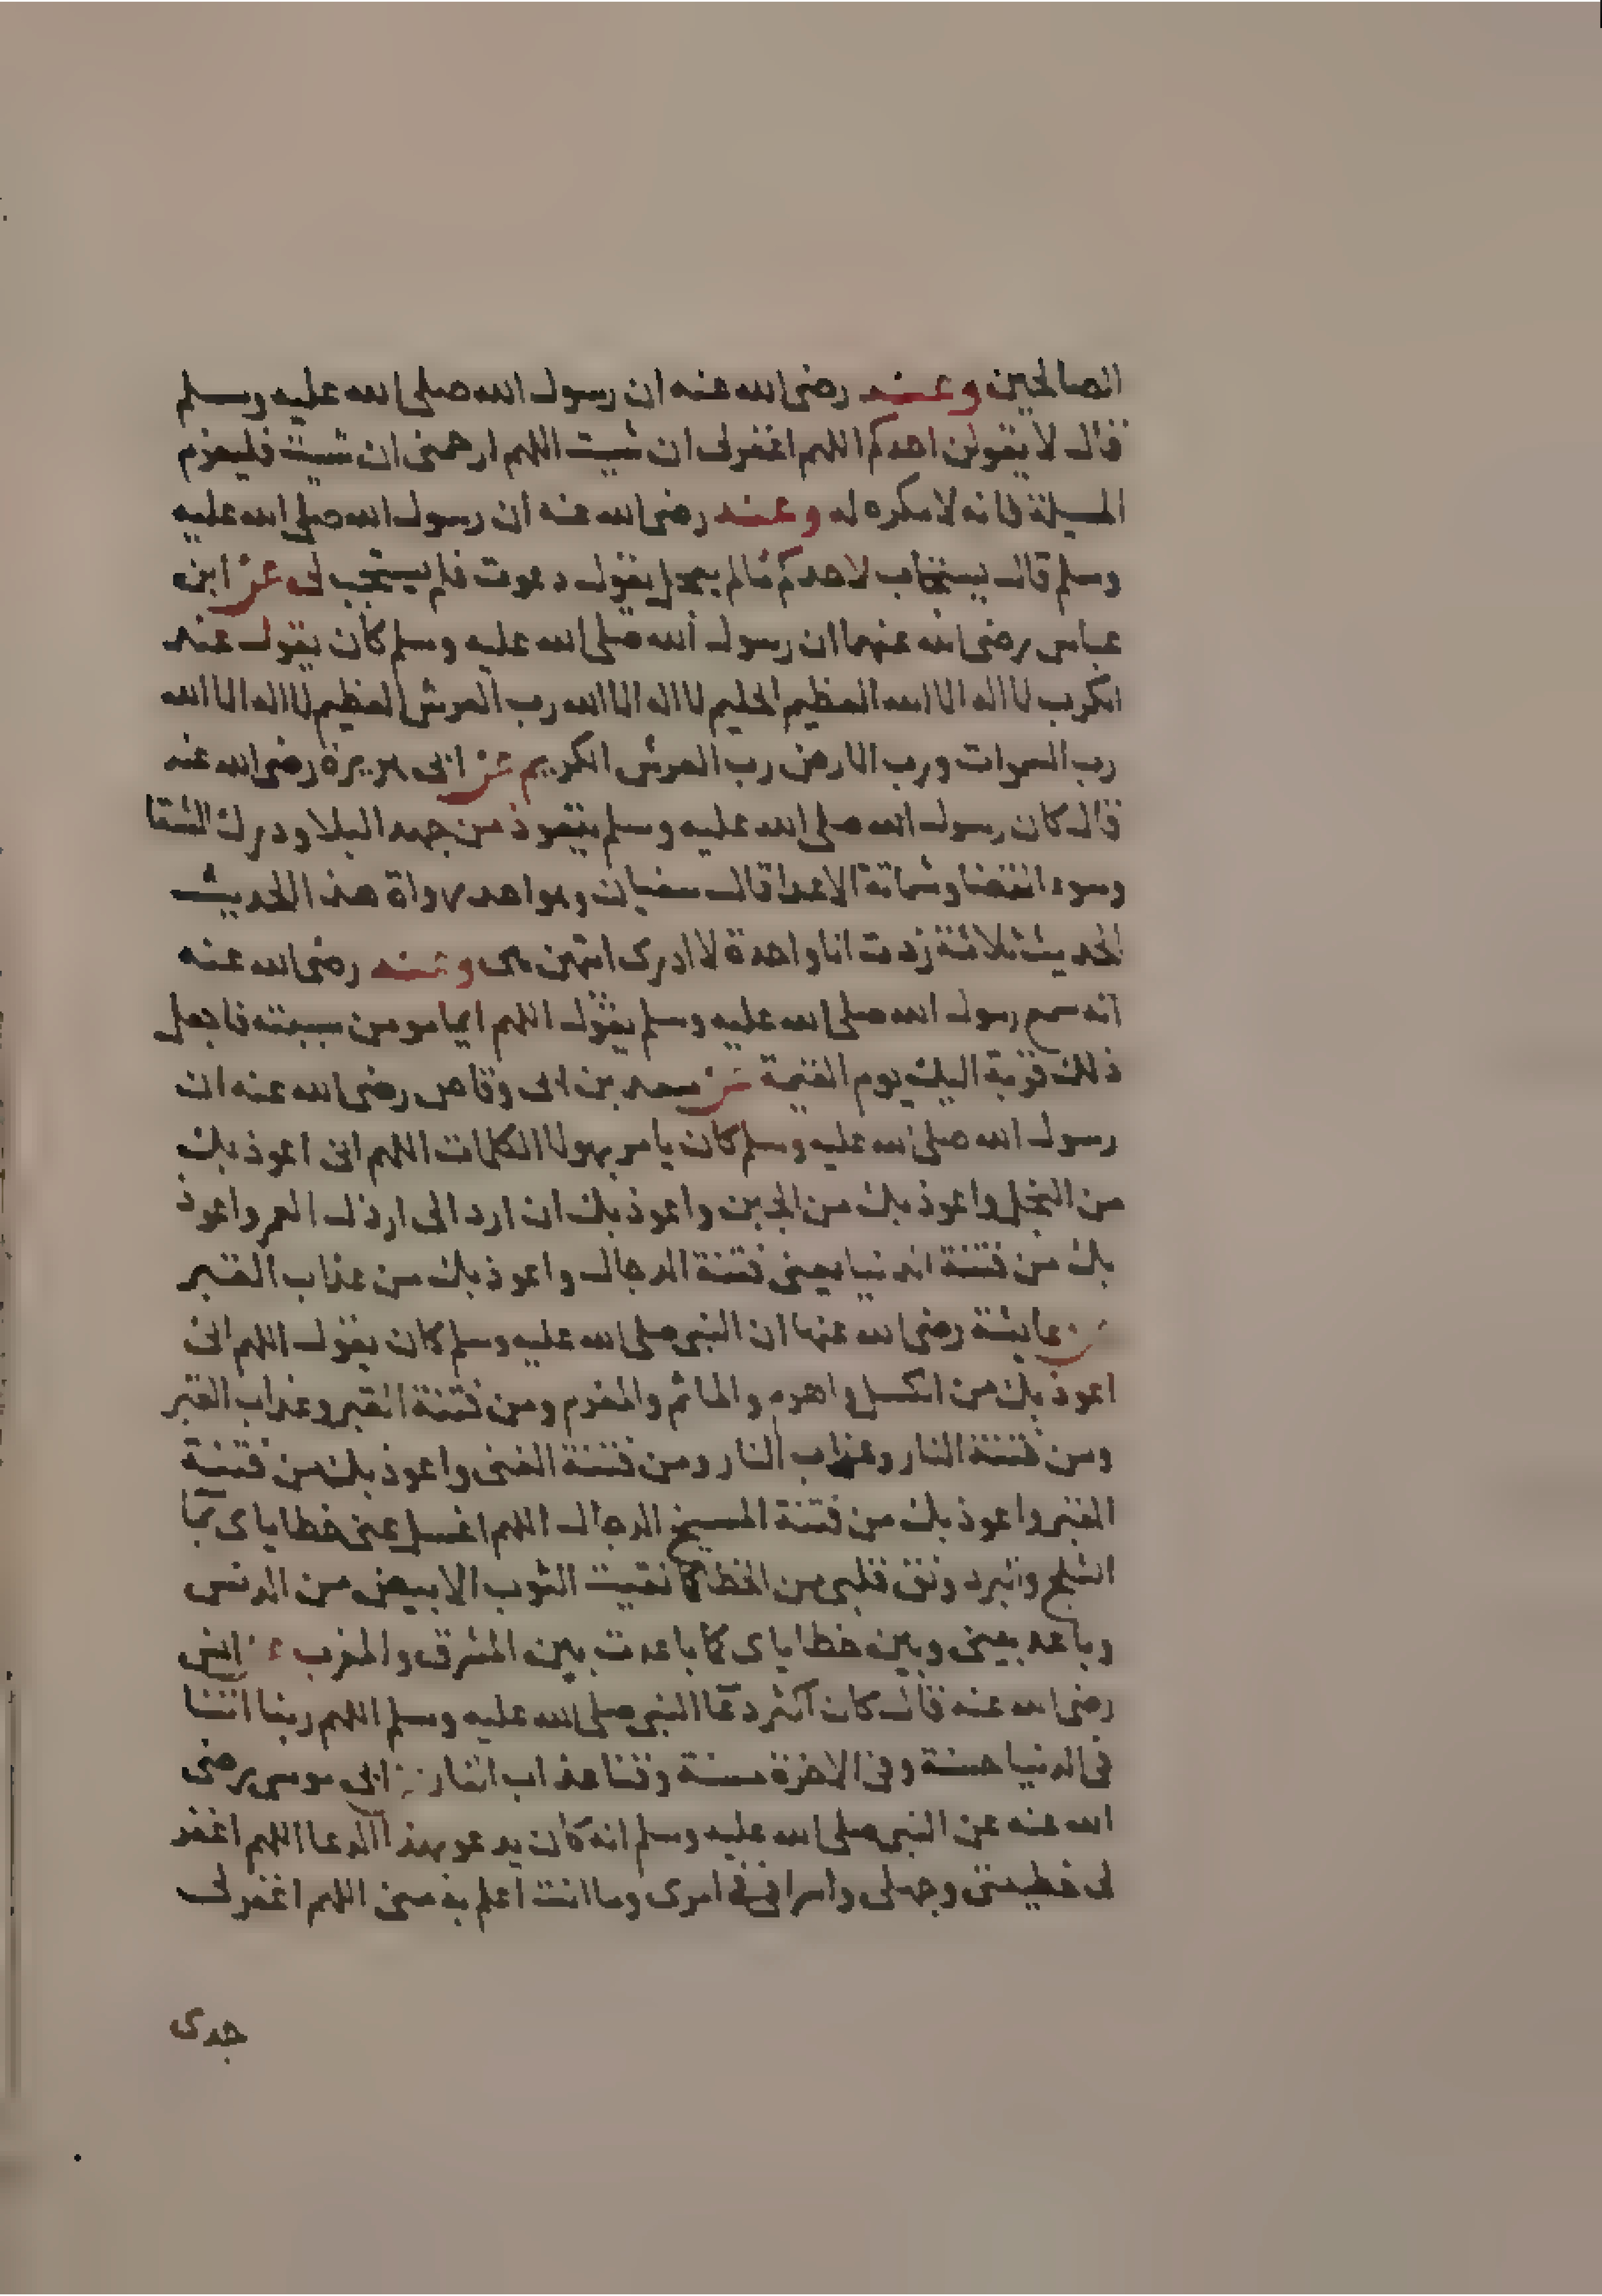 الصالحين وعنه رضى الله عنه ان رسول الله صلى الله عليه وسلم
قال لا يقولن احدكم اللهم اغفرلى ان شيت اللهم ارحمنى ان شيت فليعزم
المسيلة فانه لا مكره له وعنه رضى الله عنه ان رسول الله صلى الله عليه
وسلم قال يستجاب لاحدكم مالم يعجل يقول دعوت فلم يستجب لى عن ابن
عباس رضى الله عنهما ان رسول الله صلى الله عليه وسلم كان يقول عند
الكرب لا اله الا الله العظيم الحليم لا اله الا الله رب العرش العظيم لا اله الا الله
رب السموات ورب الارض رب العرش الكريم عن ابى هريرة رضى الله عنه
قال كان رسول الله صلى الله عليه وسلم يتعوذ من جهد البلا ودرك الشقا
وسوء القضا وشماتة الاعدا قال سفيان وهو احد رواة هذا الحديث
الحديث ثلاثة زدت انا واحدة لا ادرى ايتهن هى وعنه رضى الله عنه
انه سمع رسول الله صلى الله عليه وسلم يقول اللهم ايما مومن سببته فاجعل
ذلك قربة اليك يوم القيمة عن سعد بن ابى وقاص رضى الله عنه ان
رسول الله صلى الله عليه وسلم كان يامر بهولا الكلمات اللهم انى اعوذ بك
من البخل واعوذ بك من الجبن واعوذ بك ان ارد الى ارذل العمر واعوذ
بك من فتنة الدنيا يعنى فتنة الدجال واعوذ بك من عذاب القبر
عن عايشة رضى الله عنها ان النبى صلى الله عليه وسلم كان يقول اللهم انى
اعوذ بك من الكسل والهرم والماثم والمغرم ومن فتنة القبر وعذاب القبر
ومن فتنة النار وعذاب النار ومن فتنة الغنى واعوذ بك من فتنة
الفقر واعوذ بك من فتنة المسيح الدجال اللهم اغسل عنى خطاياى بما
الثلج والبرد ونق قلبى من الخطايا كما نقيت الثوب الابيض من الدنس
وباعد بينى وبين خطاياى كما باعدت بين المشرق والمغرب عن انس
رضى الله عنه قال كان اكثر دعا النبى صلى الله عليه وسلم اللهم ربنا اتنا
فى الدنيا حسنة وفى الاخرة حسنة وقنا عذاب النار عن ابى موسى رضى
الله عنه عن النبى صلى الله عليه وسلم انه كان يدعو بهذا الدعا اللهم اغفر
لى خطيتى وجهلى واسرافى فى امرى وما انت اعلم به منى اللهم اغفرلى
جدى